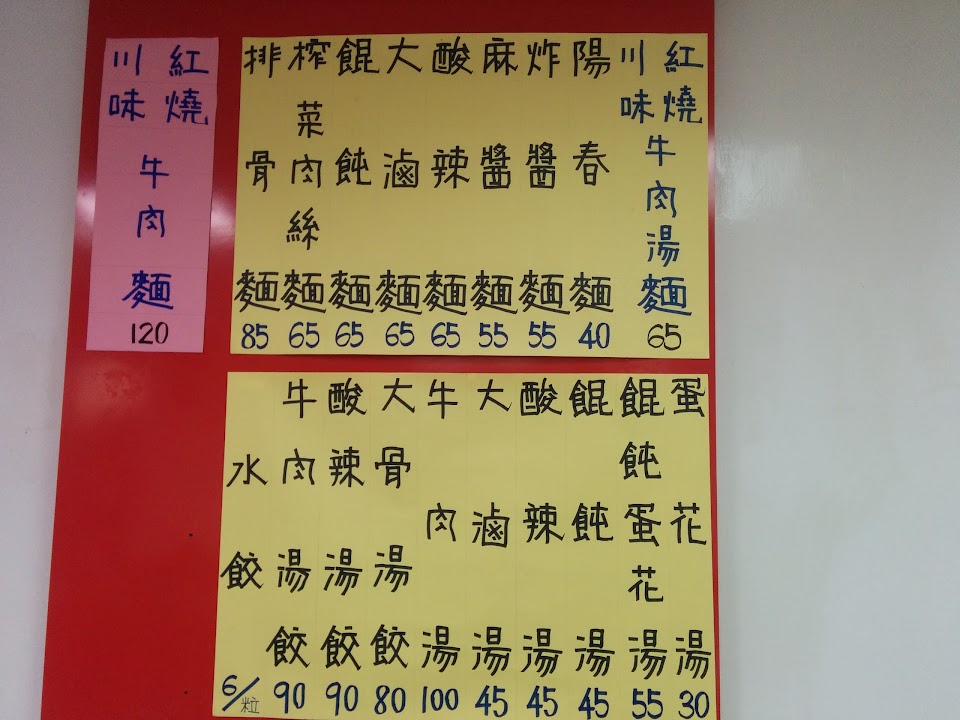 紅燒川味牛肉湯麵 65
陽春麵 40
炸醬麵 55
麻醬麵 55
酸辣麵 65
大滷麵 65
餛飩麵 65
榨菜肉絲麵 65
排骨麵 85
紅燒川味牛肉麵 120
蛋花湯 30
餛飩蛋花湯 55
餛飩湯 45
酸辣湯 45
大滷湯 45
牛肉湯 100
大骨湯餃 80
酸辣湯餃 90
牛肉湯餃 90
水餃 6/粒